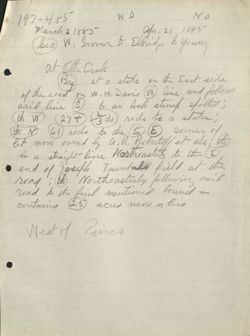 197-485 W D No
March 2 1885 Apr. 21, 1885
W. Grover to Eldridge & Young
At Otter Creek
Beg at a stake on the East side
of the road on W. H. Davis line and follow
said line S to an Ash stump spotted;
th W 27 + rods to a stake;
th N 61 rods to the S E corner of
lot now owned by A. R. et als; th
in a straight line Northeasterly to the S
end of Joseph field at the
road; th Northeasterly following said
road to the first mentioned bound +
contains 25 acres more or less
West of